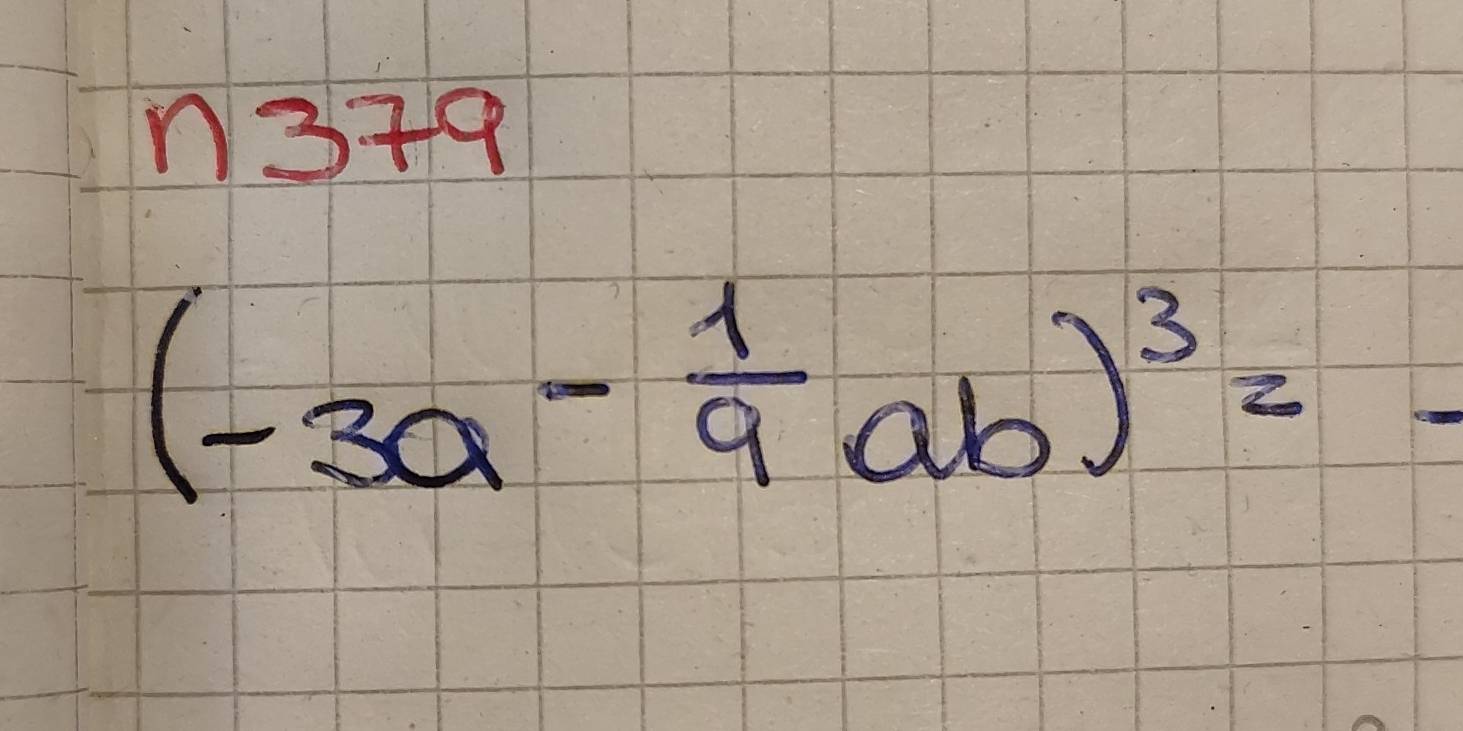 n379
(-3a - 1/9 ab)³ = -